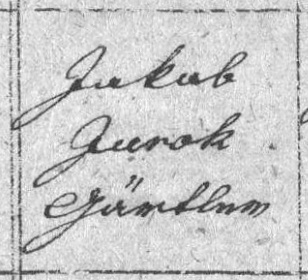 Jakob
Jurok
Gärtler